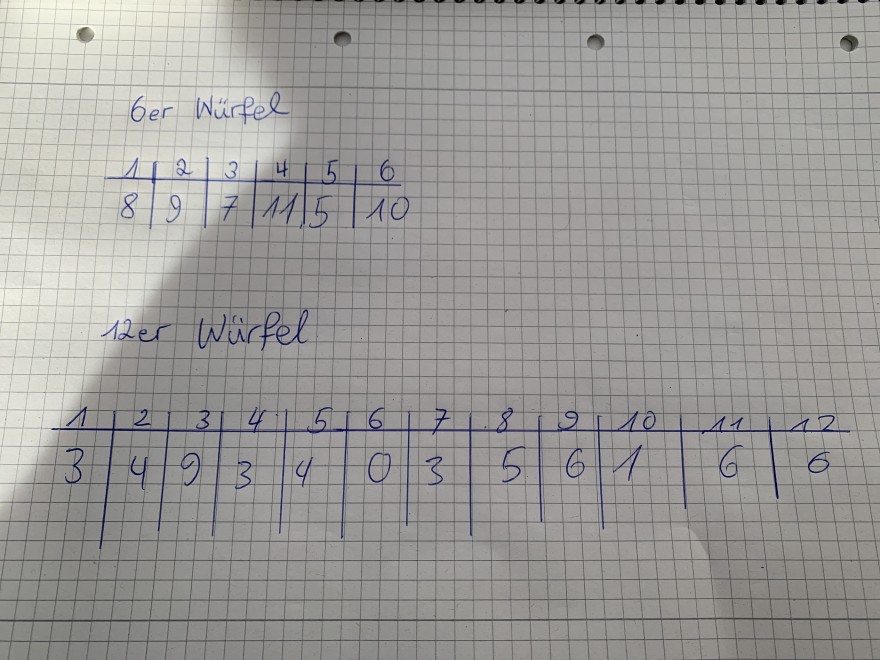 6er Würfel
1 2 3 4 5 6
8 9 7 11 5 10
12er Würfel
1 2 3 4 5 6 7 8 9 10 11 12
3 4 9 3 4 0 3 5 6 1 6 6